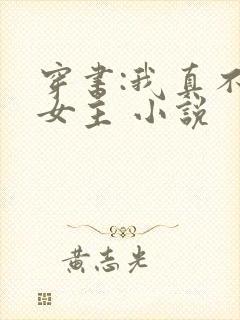 穿书:我真不
女主 小說
黃志光